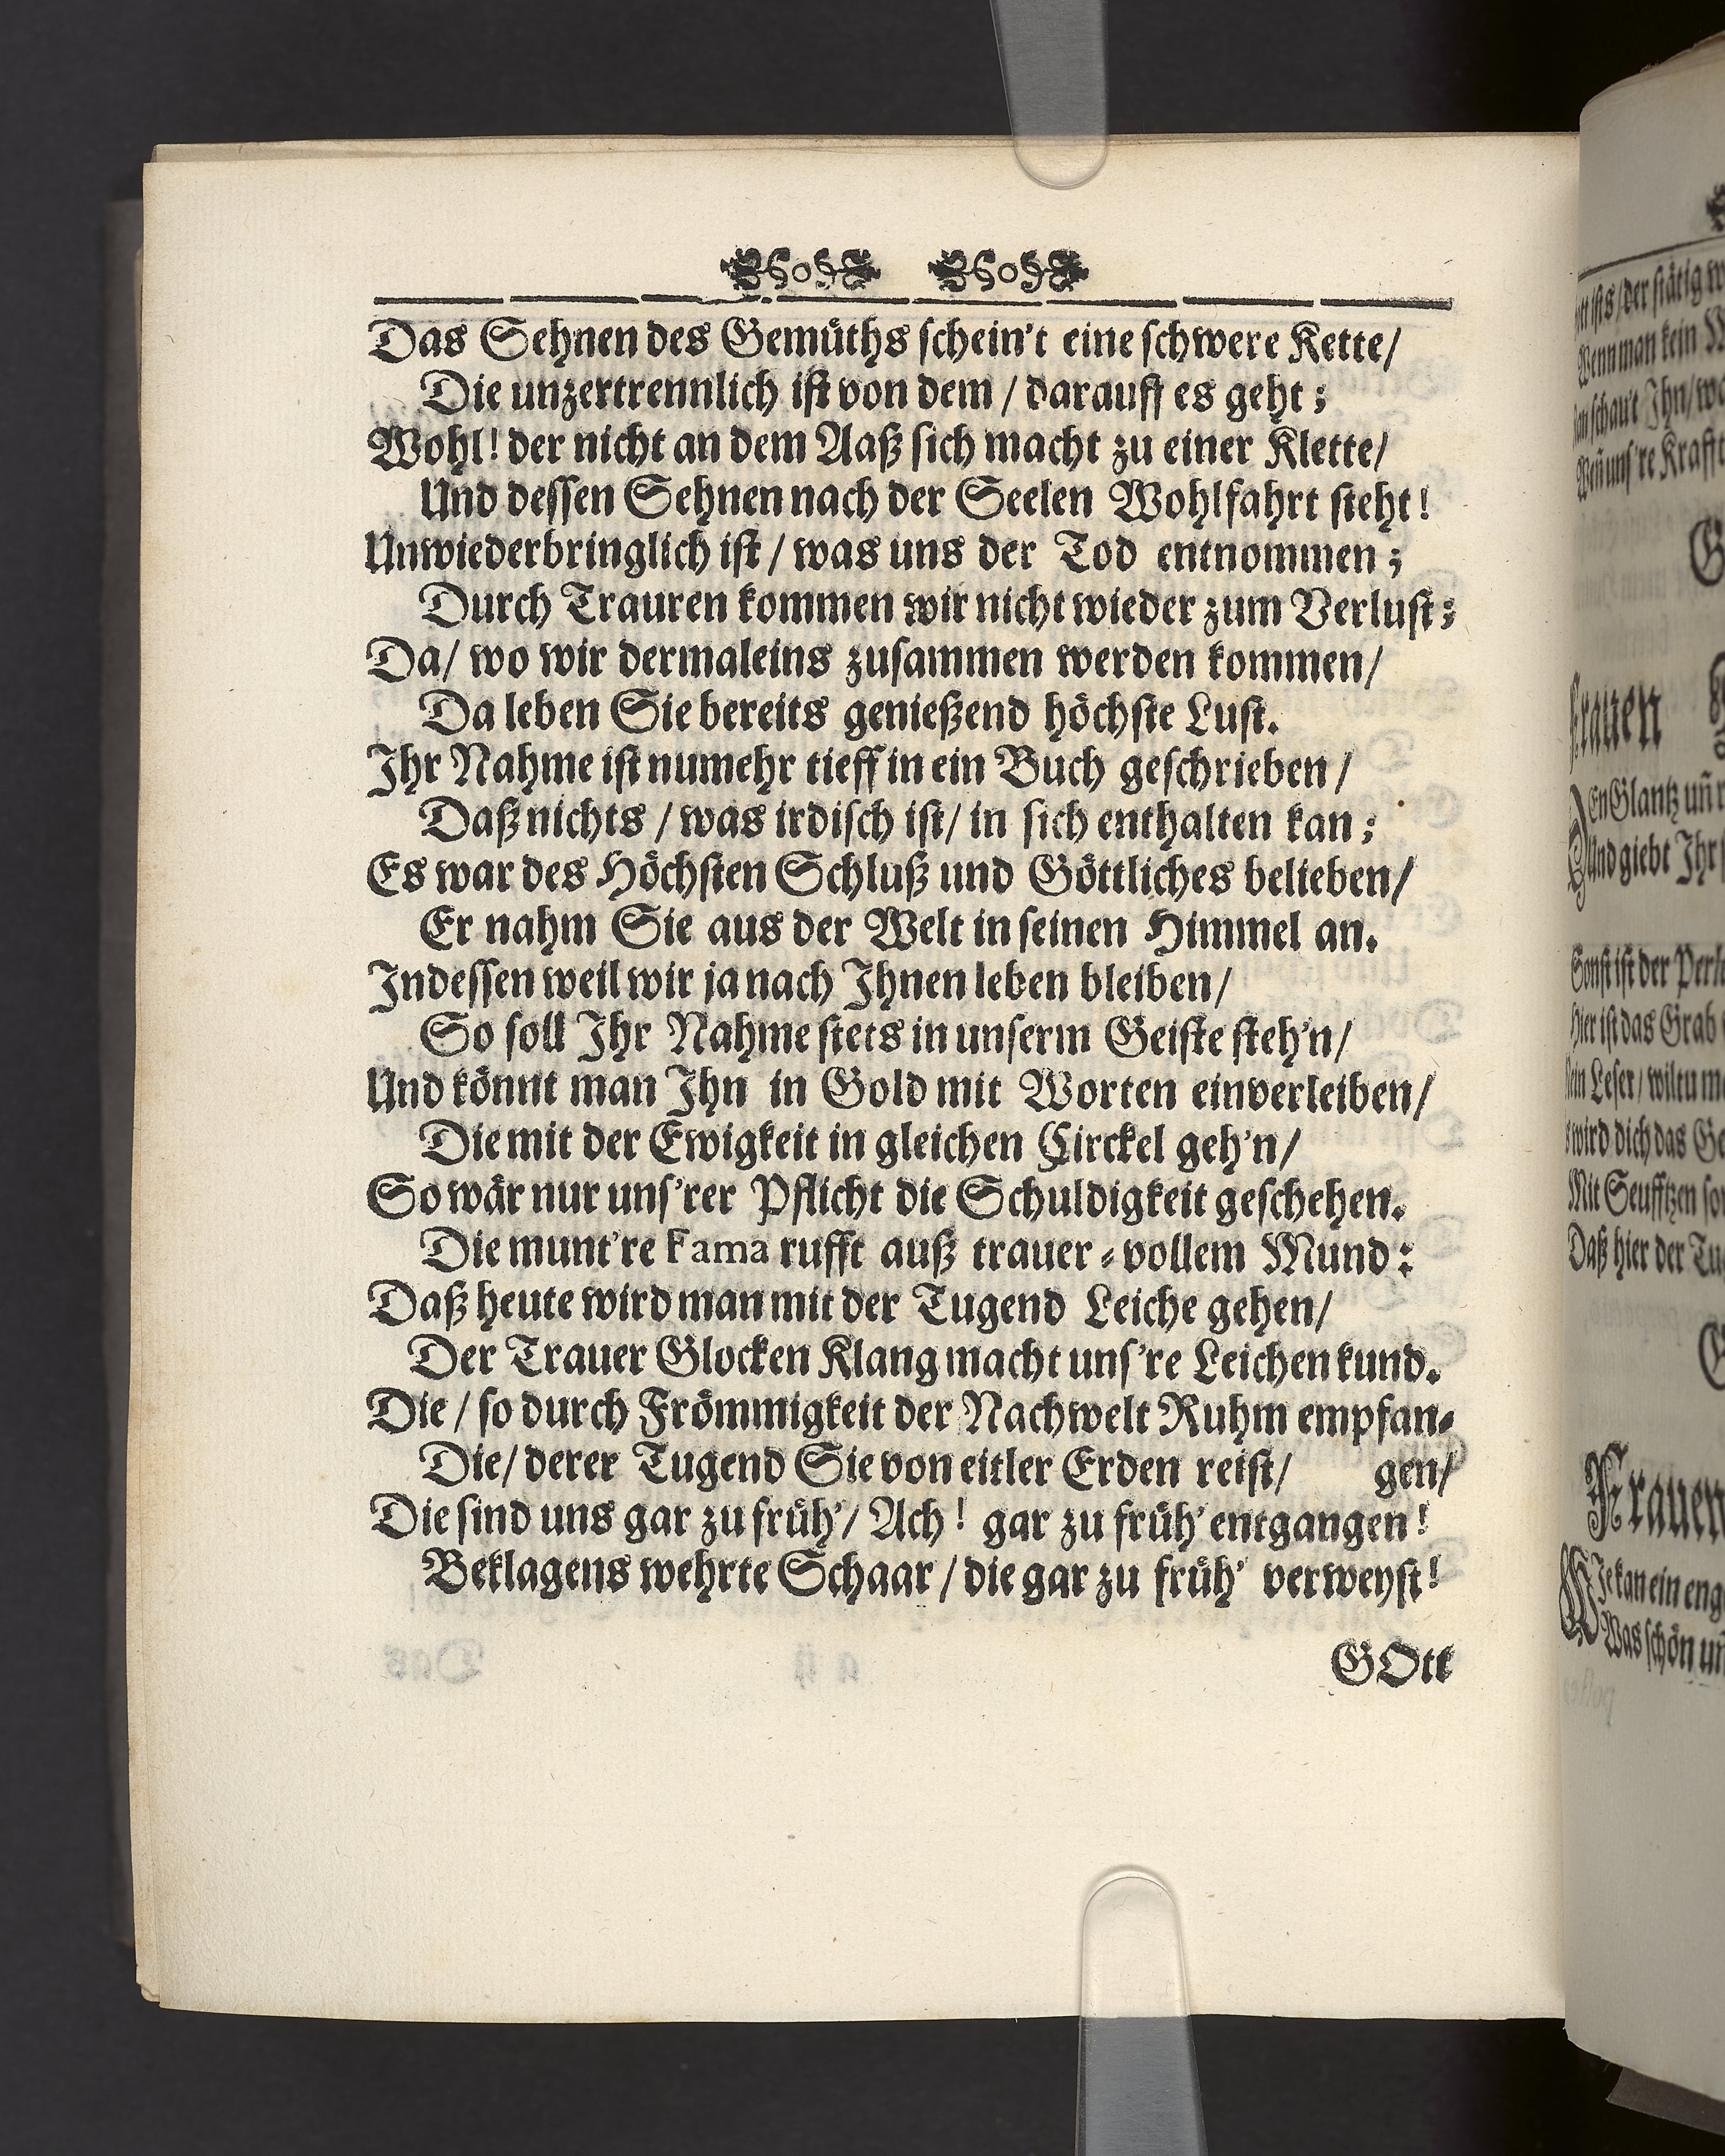 Das Sehnen des Gemüths schein't eine schwere Kette/
Die unzertrennlich ist von dem / darauff es geht;
Wohl! der nicht an dem Aaß sich macht zu einer Klette/
Und dessen Sehnen nach der Seelen Wohlfahrt steht!
Unwiederbringlich ist / was uns der Tod entnommen;
Durch Trauren kommen wir nicht wieder zum Verlust:
Da/ wo wir dermaleins zusammen werden kommen/
Da leben Sie bereits genießend höchste Lust.
Ihr Nahme ist numehr tieff in ein Buch geschrieben /
Daß nichts / was irdisch ist/ in sich enthalten kan;
Es war des Höchsten Schluß und Göttliches belieben/
Er nahm Sie aus der Welt in seinen Himmel an.
Indessen weil wir ja nach Ihnen leben bleiben/
So soll Ihr Nahme stets in unserm Geiste steh'n/
Und könnt man Ihn in Gold mit Worten einverleiben/
Die mit der Ewigkeit in gleichen Circkel geh'n/
So wär nur uns'rer Pflicht die Schuldigkeit geschehen.
Die munt're Fama rufft auß trauer-vollem Mund:
Daß heute wird man mit der Tugend Leiche gehen/
Der Trauer Glocken Klang macht uns're Leichen kund.
Die / so durch Frömmigkeit der Nachwelt Ruhm empfan-
Die/ derer Tugend Sie von eitler Erden reist/ gen/
Die sind uns gar zu früh'/ Ach! gar zu früh' entgangen!
Beklagens wehrte Schaar / die gar zu früh' verweyst!
GOtt
ists / der stätig
Wenn man kein
schau't Ihn/
Weñ uns're Krafft
Frauen
En Glantz uñ
Und giebt Ihr
Sonst ist der
Hier ist das Grab
Leser / wiltu
wird dich das
Mit Seufftzen
Daß hier der
Frauen
Je kan ein
Was schön